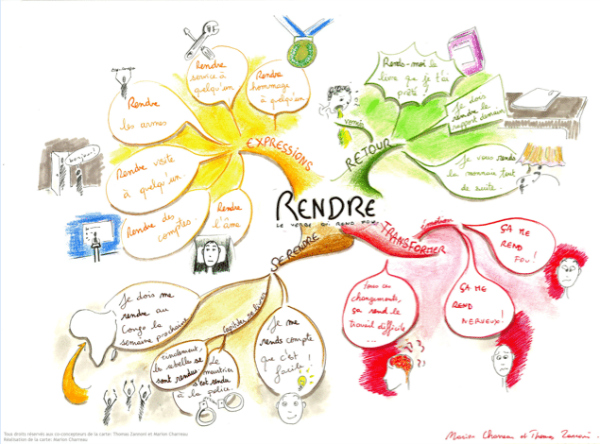 RENDRE
EXPRESSIONS
Rendre
les armes
Rendre
service à
quelqu'un
Rendre
hommage
à quelqu'un
Rendre visite
à quelqu'un
Rendre des
comptes
Rendre
l'âme
RETOUR
vomir
Rends-moi le
livre que je t'ai
prêté !
Je dois
rendre le
rapport demain
Je vous rends
la monnaie tout
de suite
TRANSFORMER
émotion
ÇA ME
REND
FOU !
ÇA ME
REND
NERVEUX !
Tous ces
changements,
ça rend le
travail difficile
...
SE RENDRE
Je dois me
rendre au
Congo la
semaine prochaine
Finalement,
les rebelles se
sont rendus
Le
meurtrier
s'est rendu
à la police
Je me
rends compte
que c'est
facile !
Tous droits réservés aux co-concepteurs de la carte: Thomas Zannoni et Marion Charreau
Réalisation de la carte: Marion Charreau
Marion Charreau et Thomas Zannoni